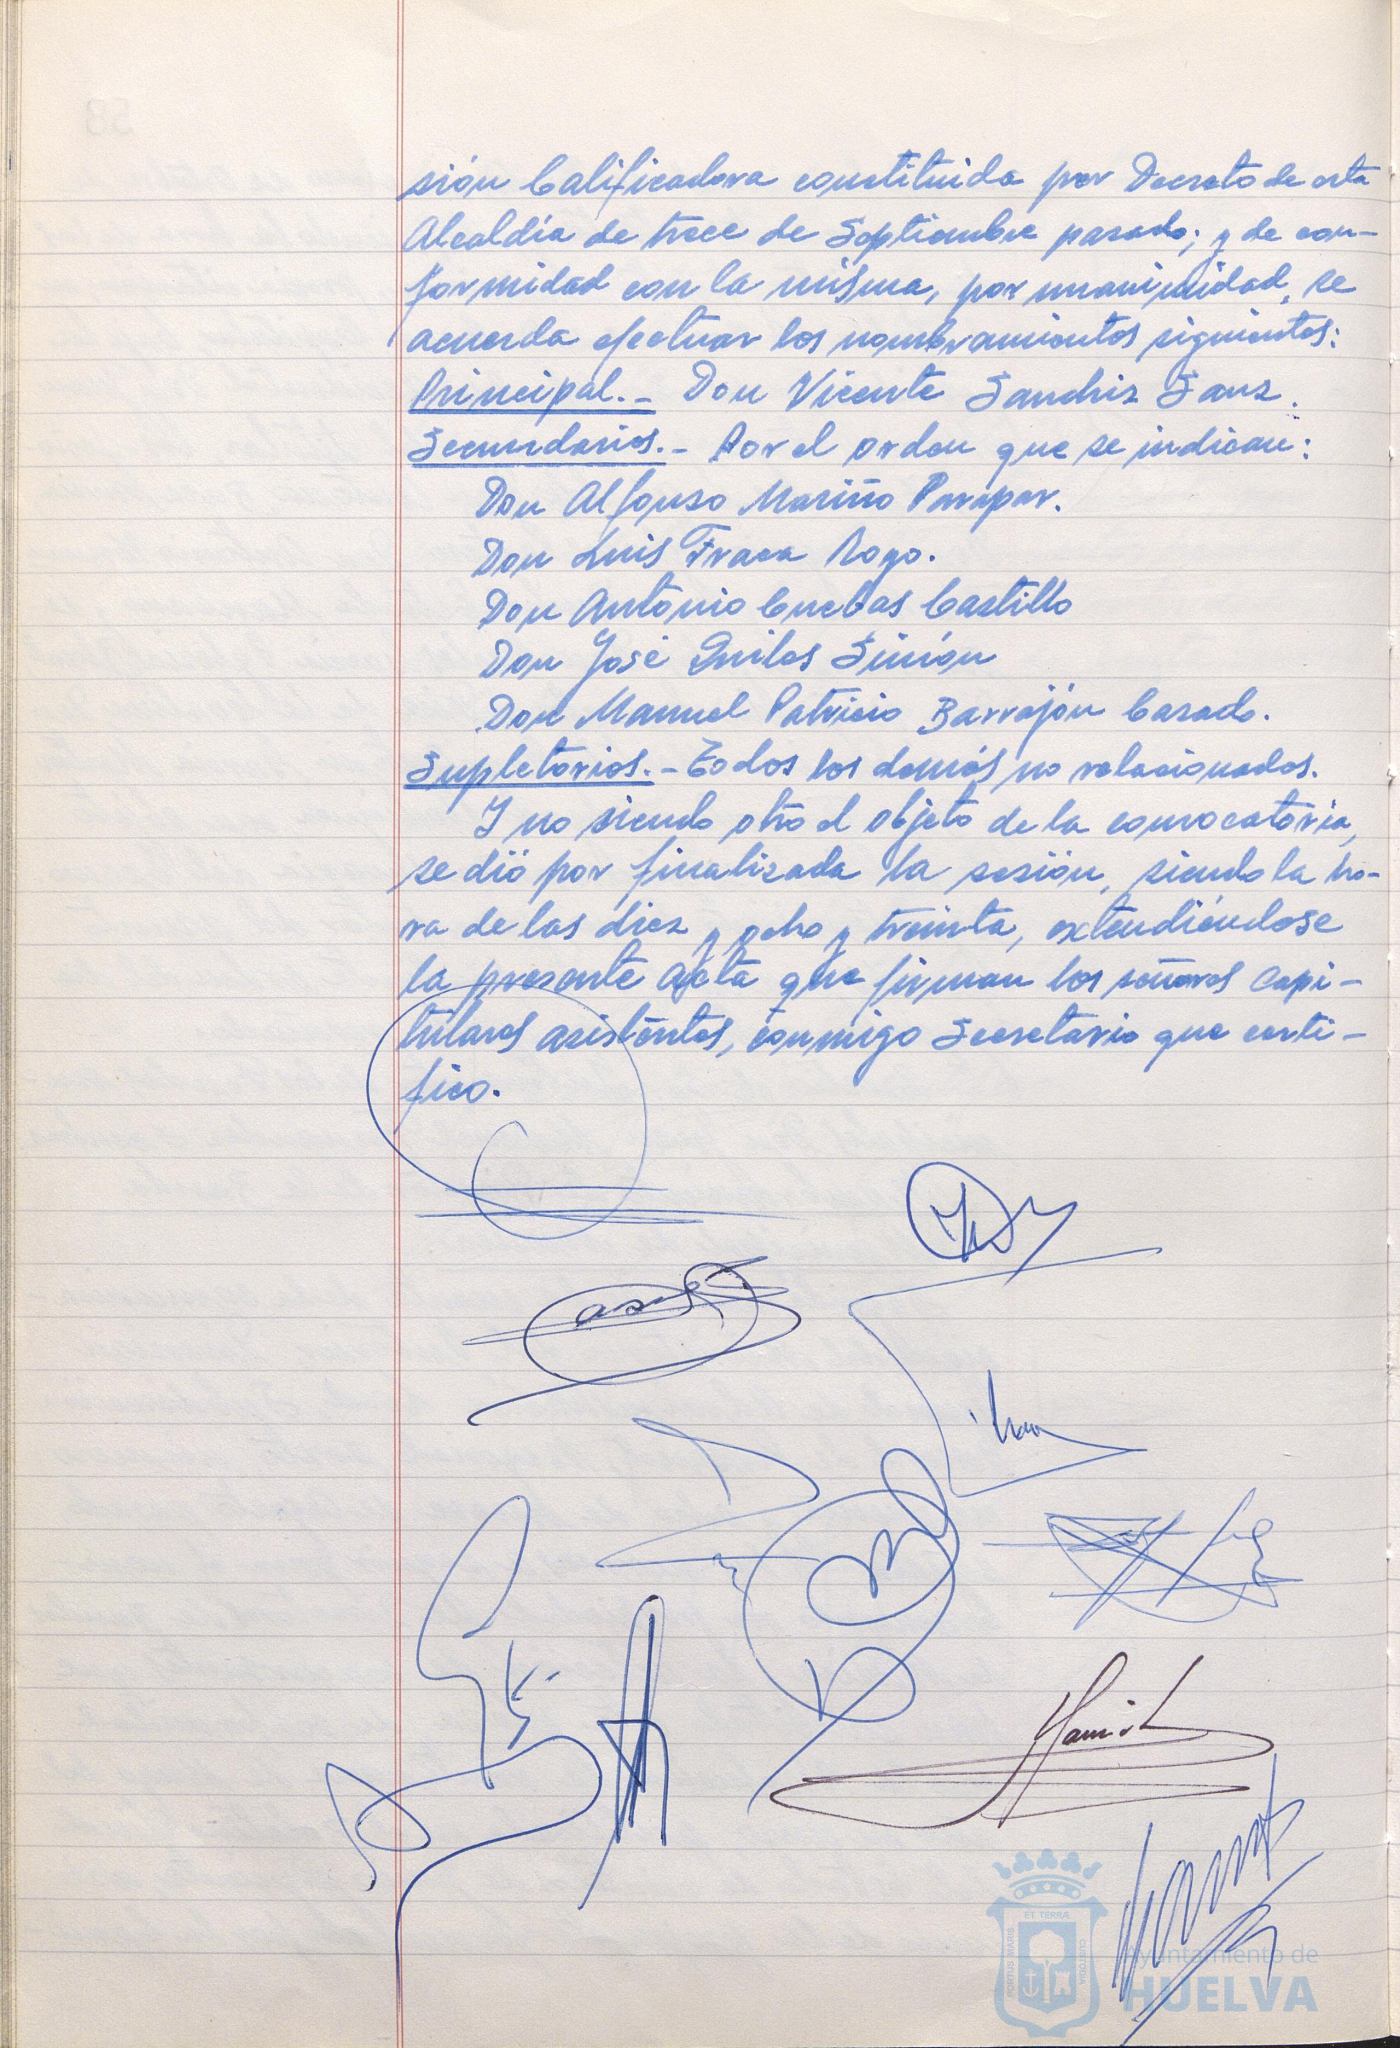 sión Calificadora constituida por Decreto de esta
Alcaldía de trece de Septiembre pasado; y de con-
formidad con la misma, por unanimidad, se
acuerda efectuar los nombramientos siguientes:
Principal.- Don Vicente Sanchiz Sanz.
Secundarios.- Por el orden que se indican:
Don Alfonso Mariño Parapar.
Don Luis Fraca Royo.
Don Antonio Cuebas Castillo
Don José Quiles Simón
Don Manuel Patricio Barrajón Casado.
Supletorios.- Todos los demás no relacionados.
Y no siendo otro el objeto de la convocatoria,
se dió por finalizada la sesión, siendo la ho-
ra de las diez y ocho y treinta, extendiéndose
la presente Acta que firman los señores Capi-
tulares asistentes, conmigo Secretario que certi-
fico.
ET TERRÆ
PORTUS MARIS
CUSTODIA
Ayuntamiento de
HUELVA